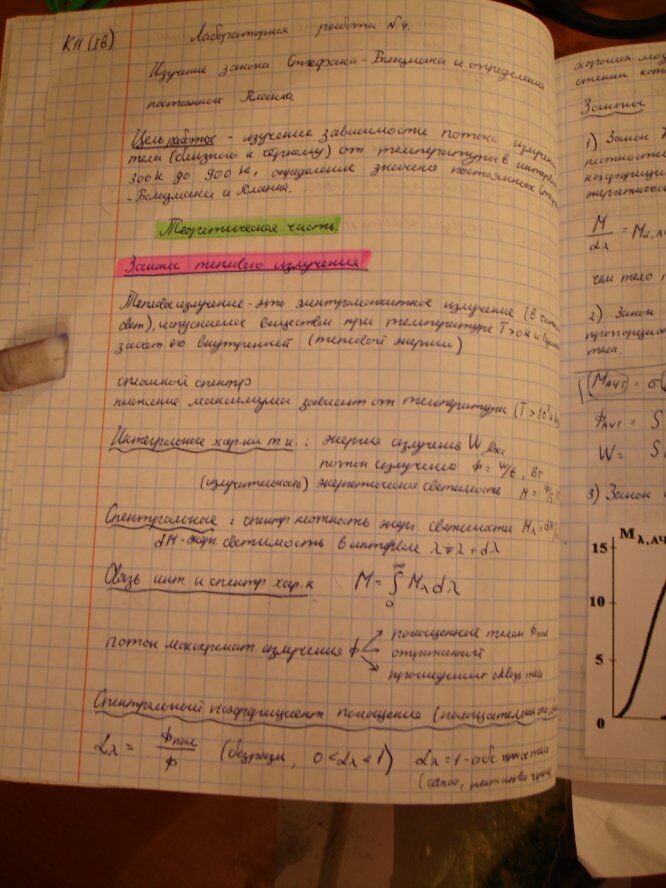 КП (IВ)
Лабораторная работа №4.
Изучение закона Стефана-Больцмана и определение
постоянной Планка.
Цель работы - изучение зависимости потока излучен
тела (близкого к чёрному) от температуры в интерва
300К до 900К, определение значения постоянных Стеф
-Больцмана и Планка.
Теоретическая часть.
Законы теплового излучения
Тепловое излучение - это электромагнитное излучение (в част
свет), испускаемое веществом при температуре T>0К и
за счет его внутренней (тепловой энергии)
сплошной спектр
положение максимума зависит от температуры (T>
Интегральные хар-ки т.и.: энергия излучения W, Дж
поток излучения Ф = W/t, Вт
(излучательность) энергетическая светимость M = Ф/S
Спектральные: спектр плотность энерг. светимости Mλ = dM
dM - энерг светимость в интервале λ ÷ λ + dλ
Связь инт и спектр хар-к M = ∫₀^∞ Mλdλ
поток монохромат излучения Ф
поглощенный телом Фпогл
отраженный
прошедший сквозь тело
Спектральный коэффициент поглощения (поглощательная
αλ = Фпогл/Ф (безразм, 0<αλ<1) αλ=1 - абс. черное тело
(сажа, платиновая чернь
хорошая
Законы
1) Закон
M/αλ = Mλ,АЧ
чем тело
2) Закон
пропорцио
тела.
(MАЧТ) = σ
ФАЧТ = S
W = S
3) Закон
Mλ,АЧ
15
10
5
0